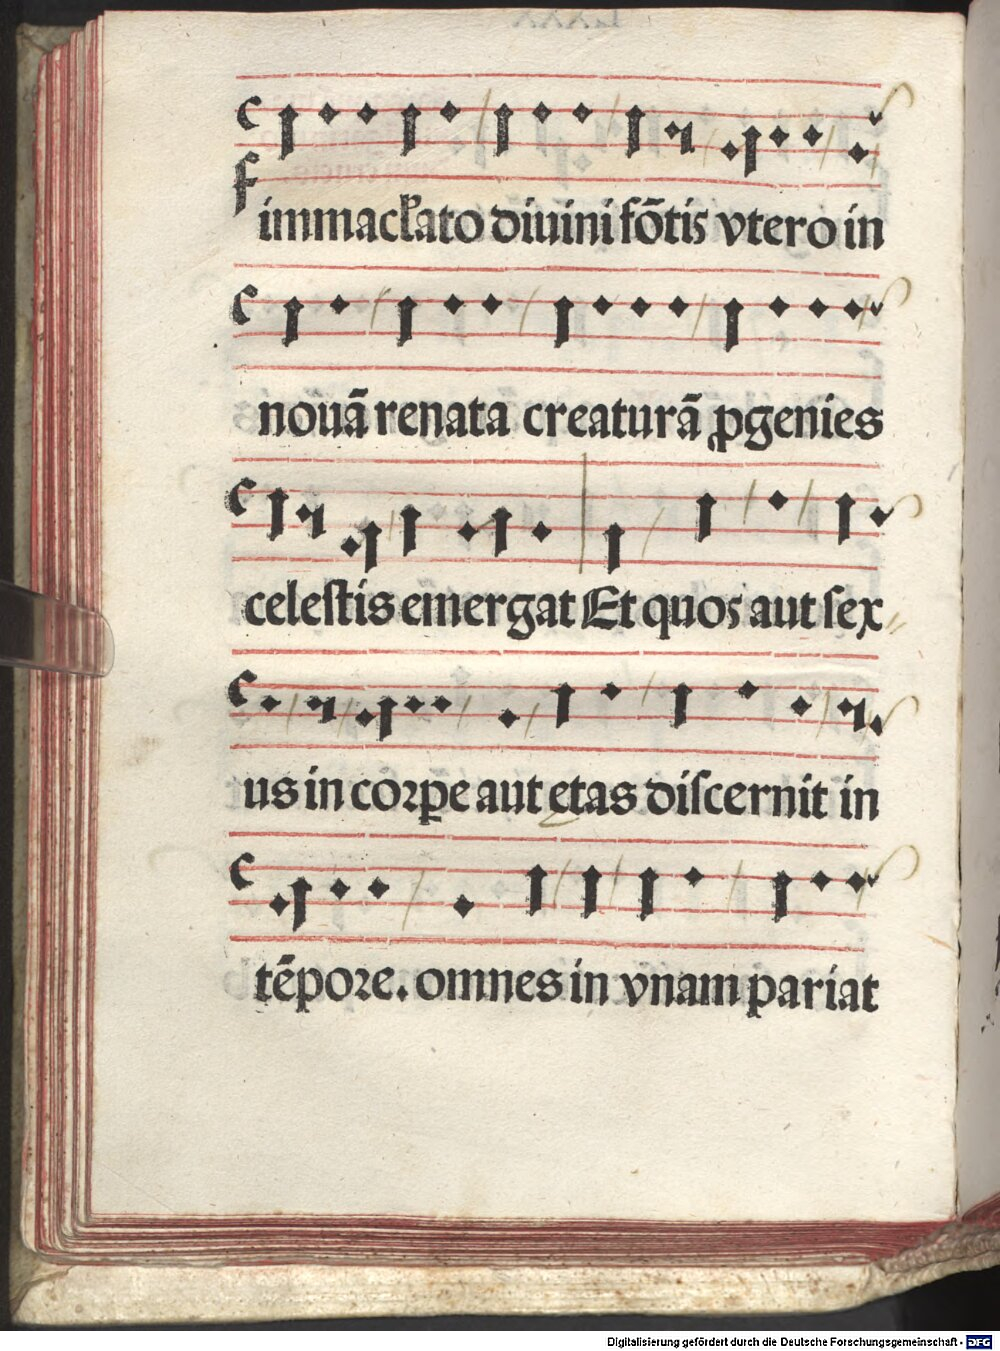 immacłato diuini fōtis vtero in
nouā renata creaturā ꝓgenies
celeſtis emergat Et quos aut ſex
us in coꝛꝑe aut etas diſcernit in
tēpoꝛe. omnes in vnam pariat
Digitalisierung gefördert durch die Deutsche Forschungsgemeinschaft - DFG